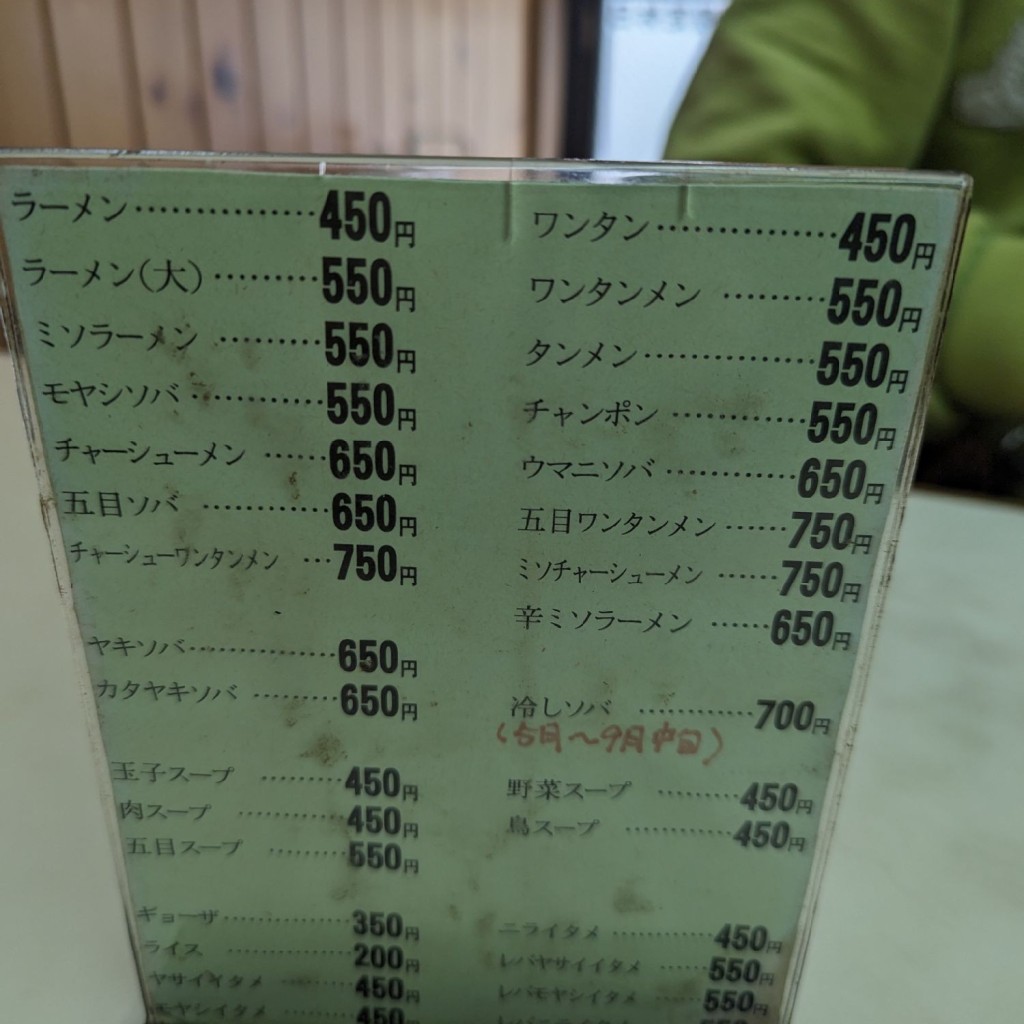 ラーメン……………450円
ラーメン(大)………550円
ミソラーメン………550円
モヤシソバ…………550円
チャーシューメン……650円
五目ソバ…………650円
チャーシューワンタンメン…750円
ヤキソバ……………650円
カタヤキソバ………650円
玉子スープ………450円
肉スープ…………450円
五目スープ………550円
ギョーザ…………350円
ライス…………200円
ヤサイイタメ……450円
モヤシイタメ……450円
ワンタン……………450円
ワンタンメン………550円
タンメン……………550円
チャンポン…………550円
ウマニソバ…………650円
五目ワンタンメン……750円
ミソチャーシューメン……750円
辛ミソラーメン……650円
冷しソバ…………700円
(5月〜9月中旬)
野菜スープ………450円
鳥スープ…………450円
ニライタメ…………450円
レバヤサイイタメ……550円
レバモヤシイタメ……550円